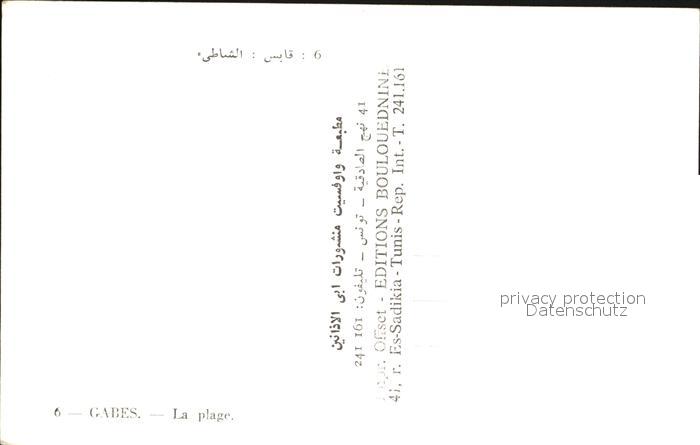 6 : قابس : الشاطىء
مطبعة واوفسيت منشورات ابى الاذانين
41 نهج الصادقية – تونس – تليفون: 161 241
Impr. Offset - EDITIONS BOULOUEDNINE
41, r. Es-Sadikia - Tunis - Rep. Int. - T. 241.161
privacy protection
Datenschutz
6 — GABES. — La plage.